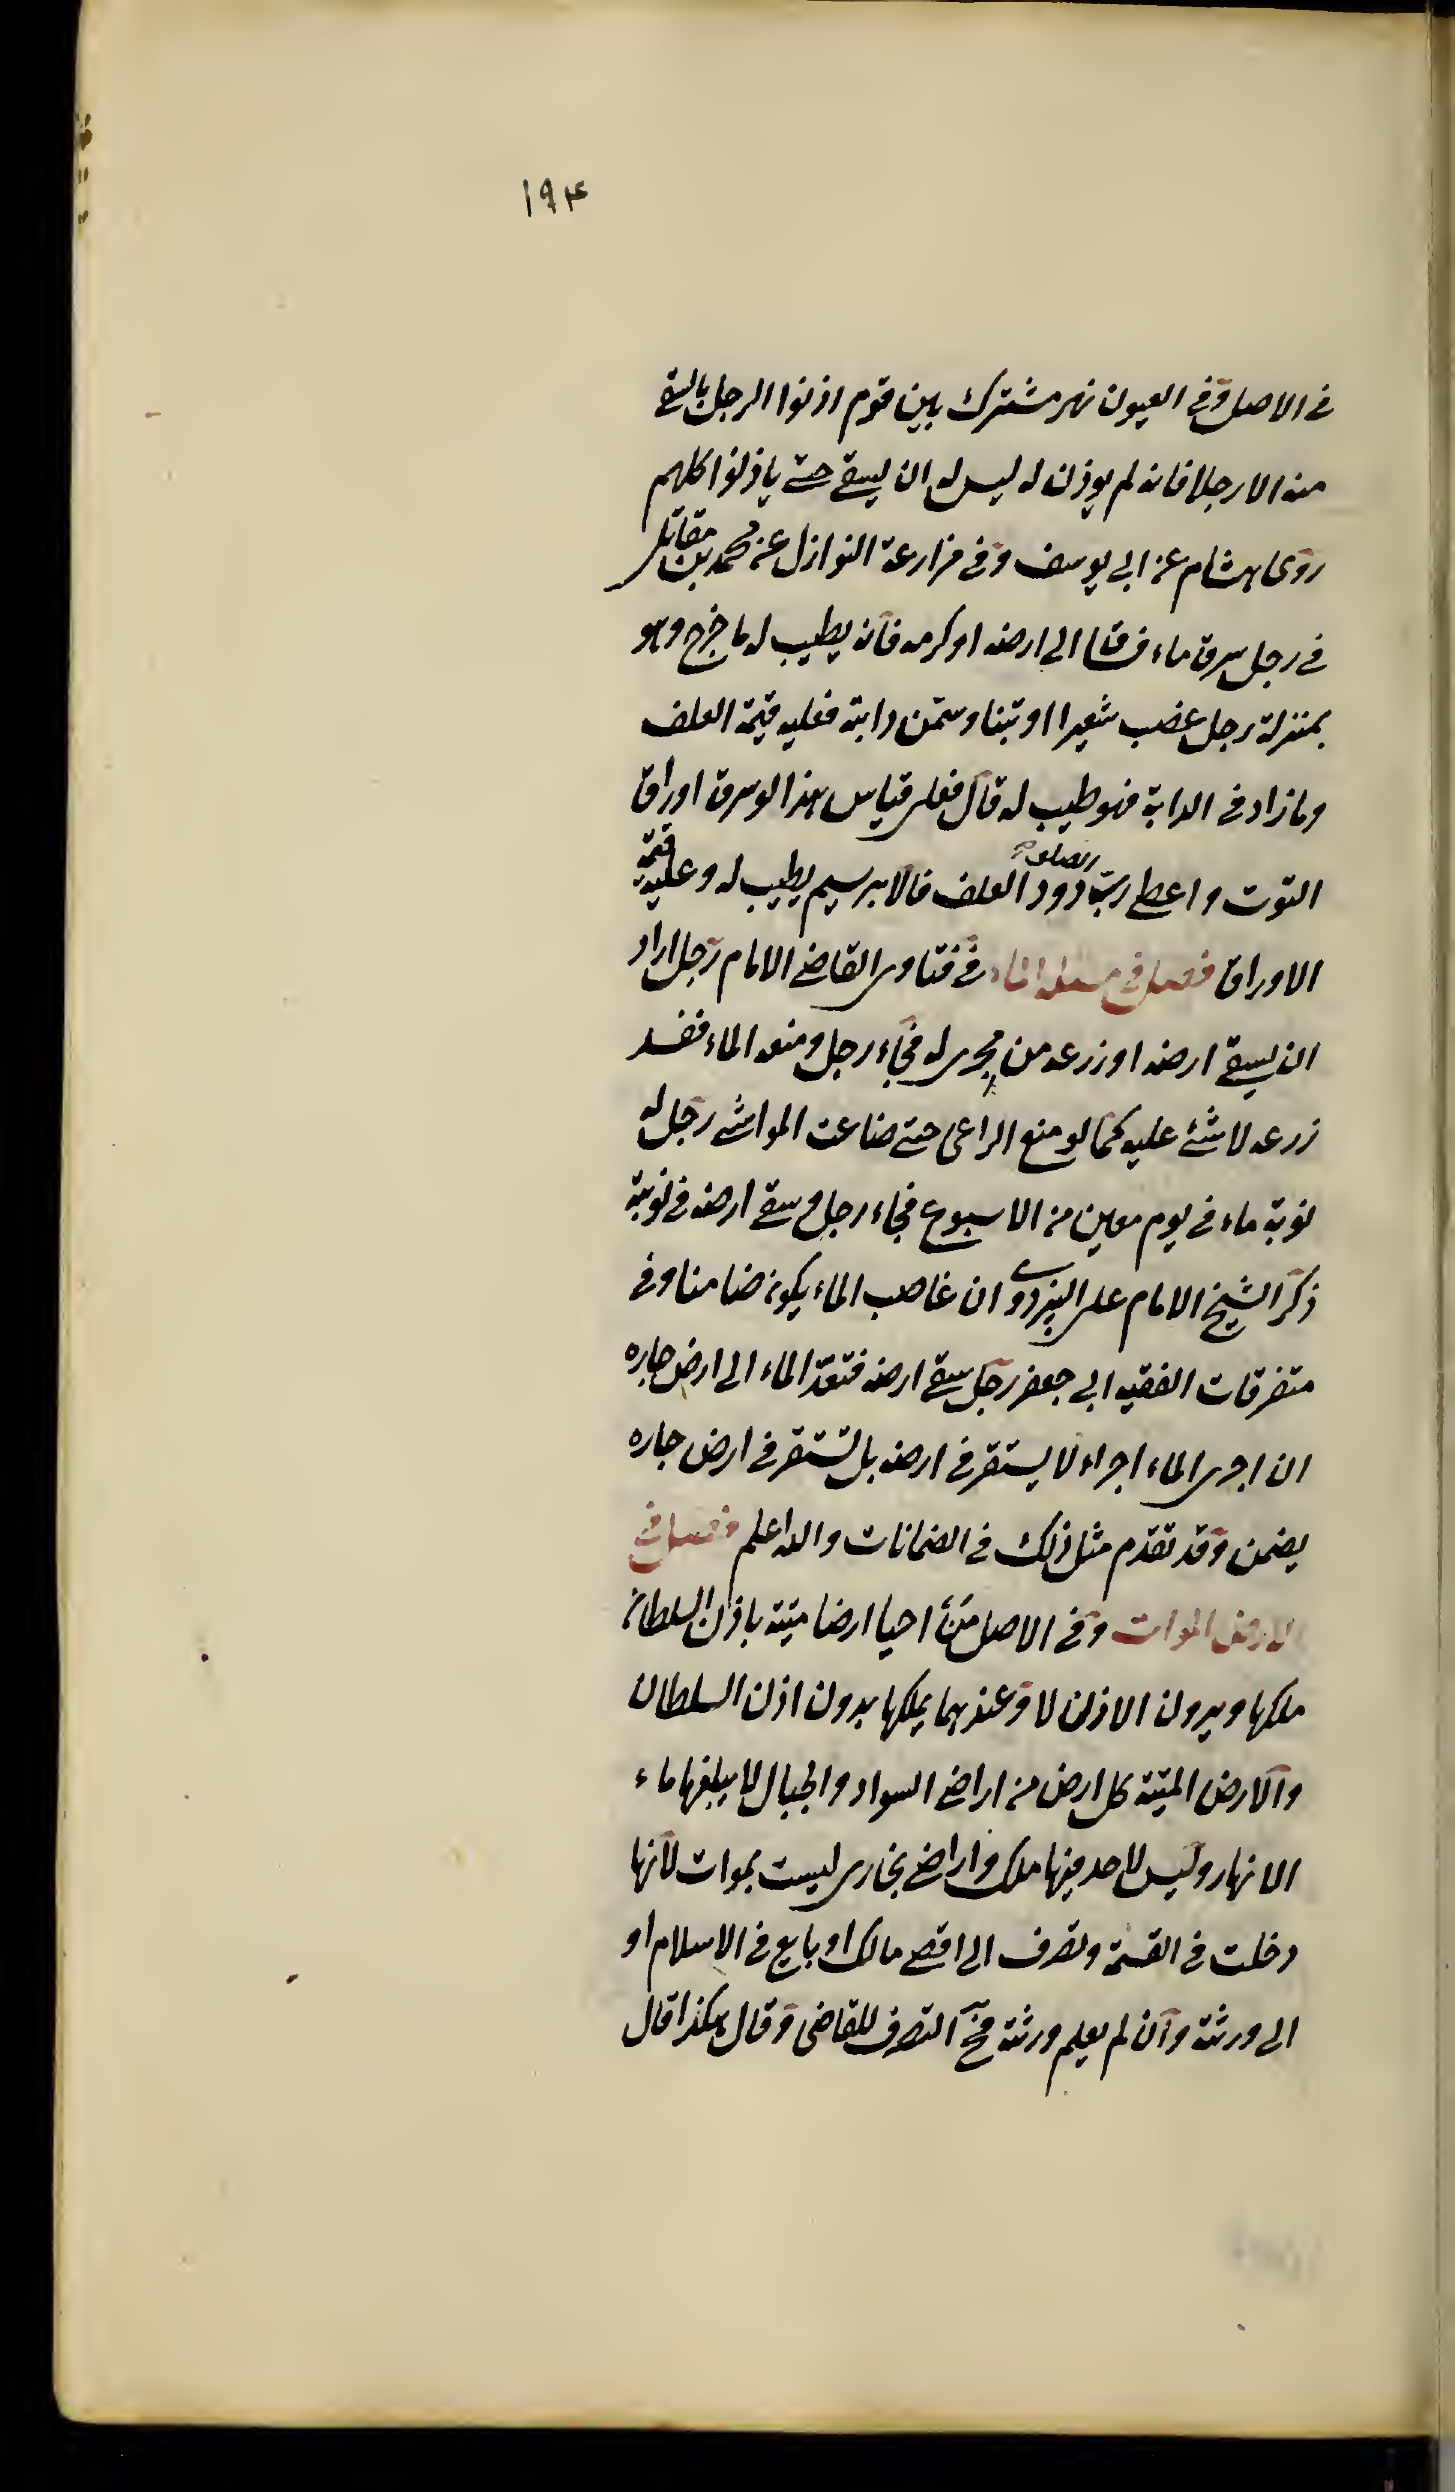 ۱۹۴
في الاصل وفي العيون نهر مشترك بين قوم اذنوا الرجل بالسقي
منه الا رجلا فانه لم يوذن له ليس له ان يسقي حتى ياذنوا كلهم
روى هشام عن ابي يوسف وفي مزارعة النوازل عن محمد بن مقاتل
في رجل سرق ماء فساقه الى ارضه او كرمه فانه يطيب له ما خرج وهو
بمنزلة رجل غصب شعيرا او تبنا وسمن دابته فعليه قيمة العلف
وما زاد في الدابة فهو طيب له قال فعلى قياس هذا لو سرق اوراق
التوت واعطى دود العلف فالابريسم يطيب له وعليه قيمة
الاوراق فصل في مسئلة الماء في فتاوى القاضي الامام رجل اراد
ان يسقي ارضه او زرعه من مجرى له فجاء رجل ومنعه الماء ففسد
زرعه لا شئ عليه كما لو منع الراعي حتى ضاعت المواشي رجل له
نوبة ماء في يوم معين من الاسبوع فجاء رجل وسقى ارضه في نوبته
ذكر الشيخ الامام على البزدوي ان غاصب الماء يكون ضامنا وفي
متفرقات الفقيه ابي جعفر رجل سقى ارضه فتعد الماء الى ارض جاره
ان اجرى الماء اجراء لا يستقر في ارضه بل تستقر في ارض جاره
يضمن وقد تقدم مثل ذلك في الضمانات والله اعلم فصل في
الارض الموات وفي الاصل من احيا ارضا ميتة باذن السلطان
ملكها وبدون الاذن لا وعندهما يملكها بدون اذن السلطان
والارض الميتة كل ارض من اراضي السواد والجبال لا يبلغها ماء
الانهار وليس لاحد فيها ملك واراضي بخارى ليست بموات لانها
دخلت في القسمة وتصرف الى اقصى مالك او بايع في الاسلام او
الى ورثته وان لم يعلم ورثته فحق التصرف للقاضي وقال هكذا قال